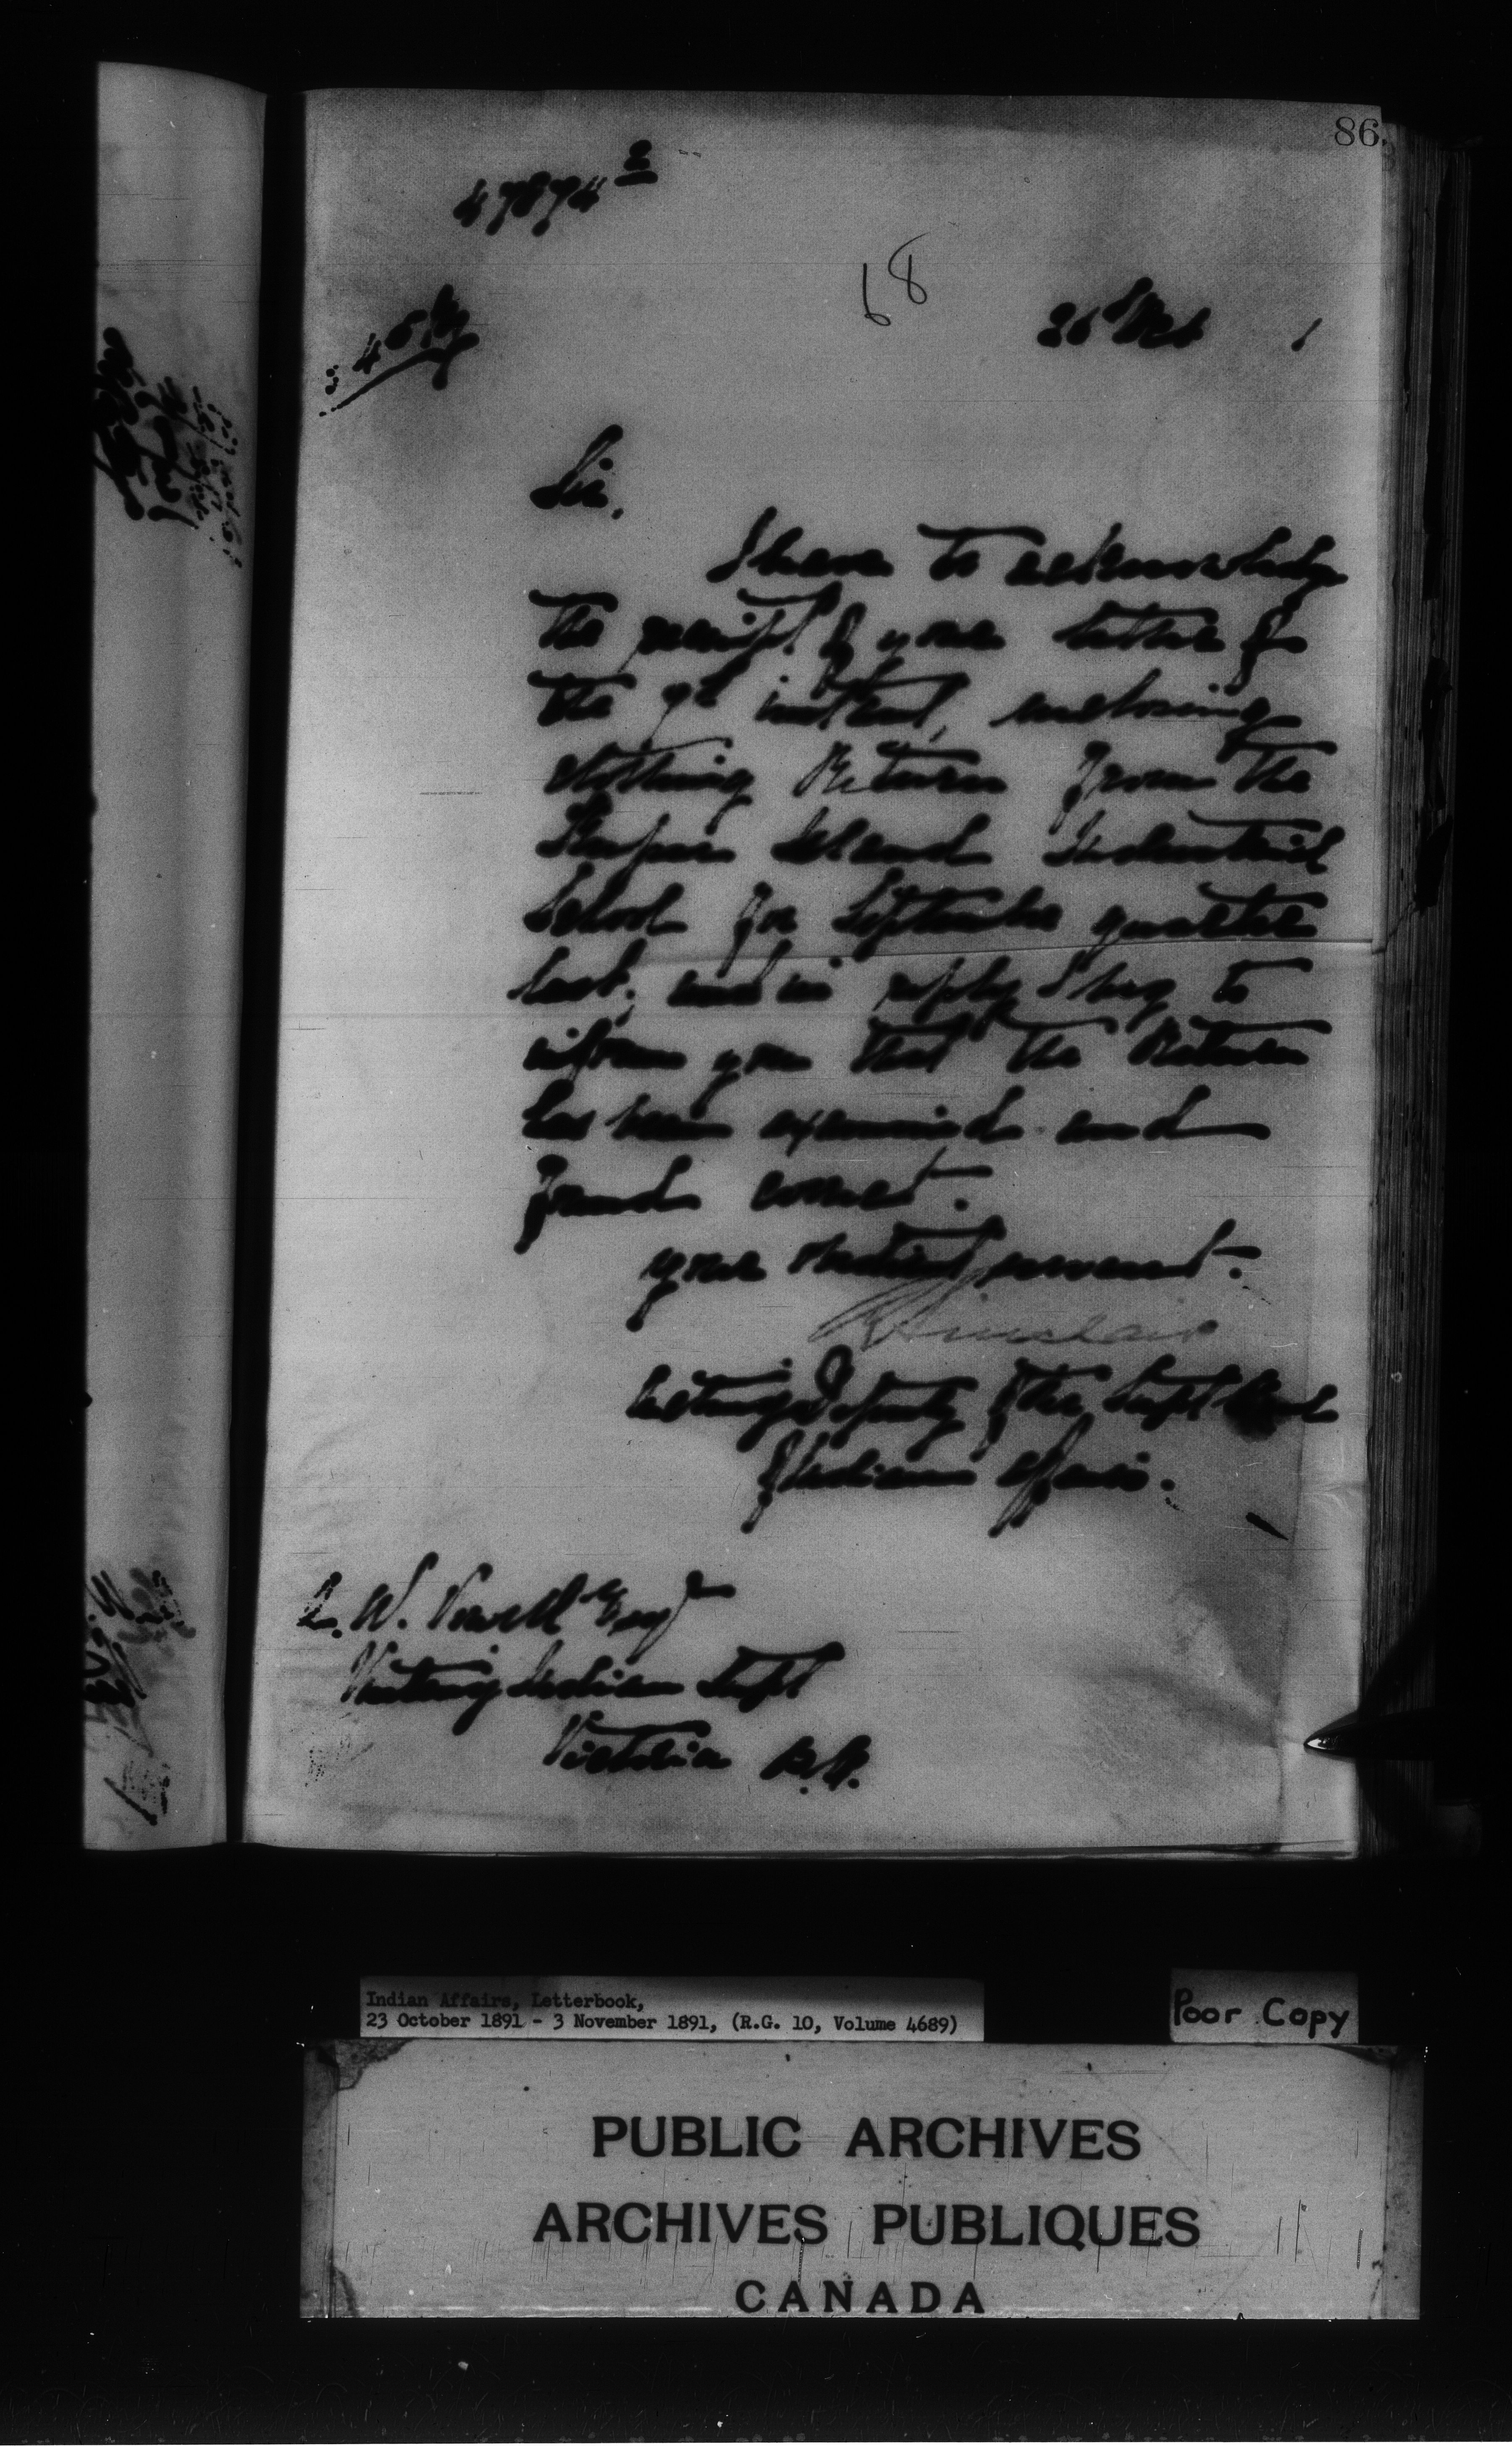 86
47874 2
68
26 Oct 1
Sir,
I have to acknowledge
the receipt of your letter of
the 9th instant, enclosing
Clothing Return from the
Kuper Island Industrial
School for September quarter
last, and in reply I beg to
inform you that the Return
has been examined and
found correct.
Your obedient servant.
R Sinclair
Acting Deputy of the Supt Genl
of Indian Affairs.
W. Powell Esqr
Visiting Indian Supt
Victoria B.C.
Indian Affairs, Letterbook,
23 October 1891 - 3 November 1891, (R.G. 10, Volume 4689)
Poor Copy
PUBLIC ARCHIVES
ARCHIVES PUBLIQUES
CANADA